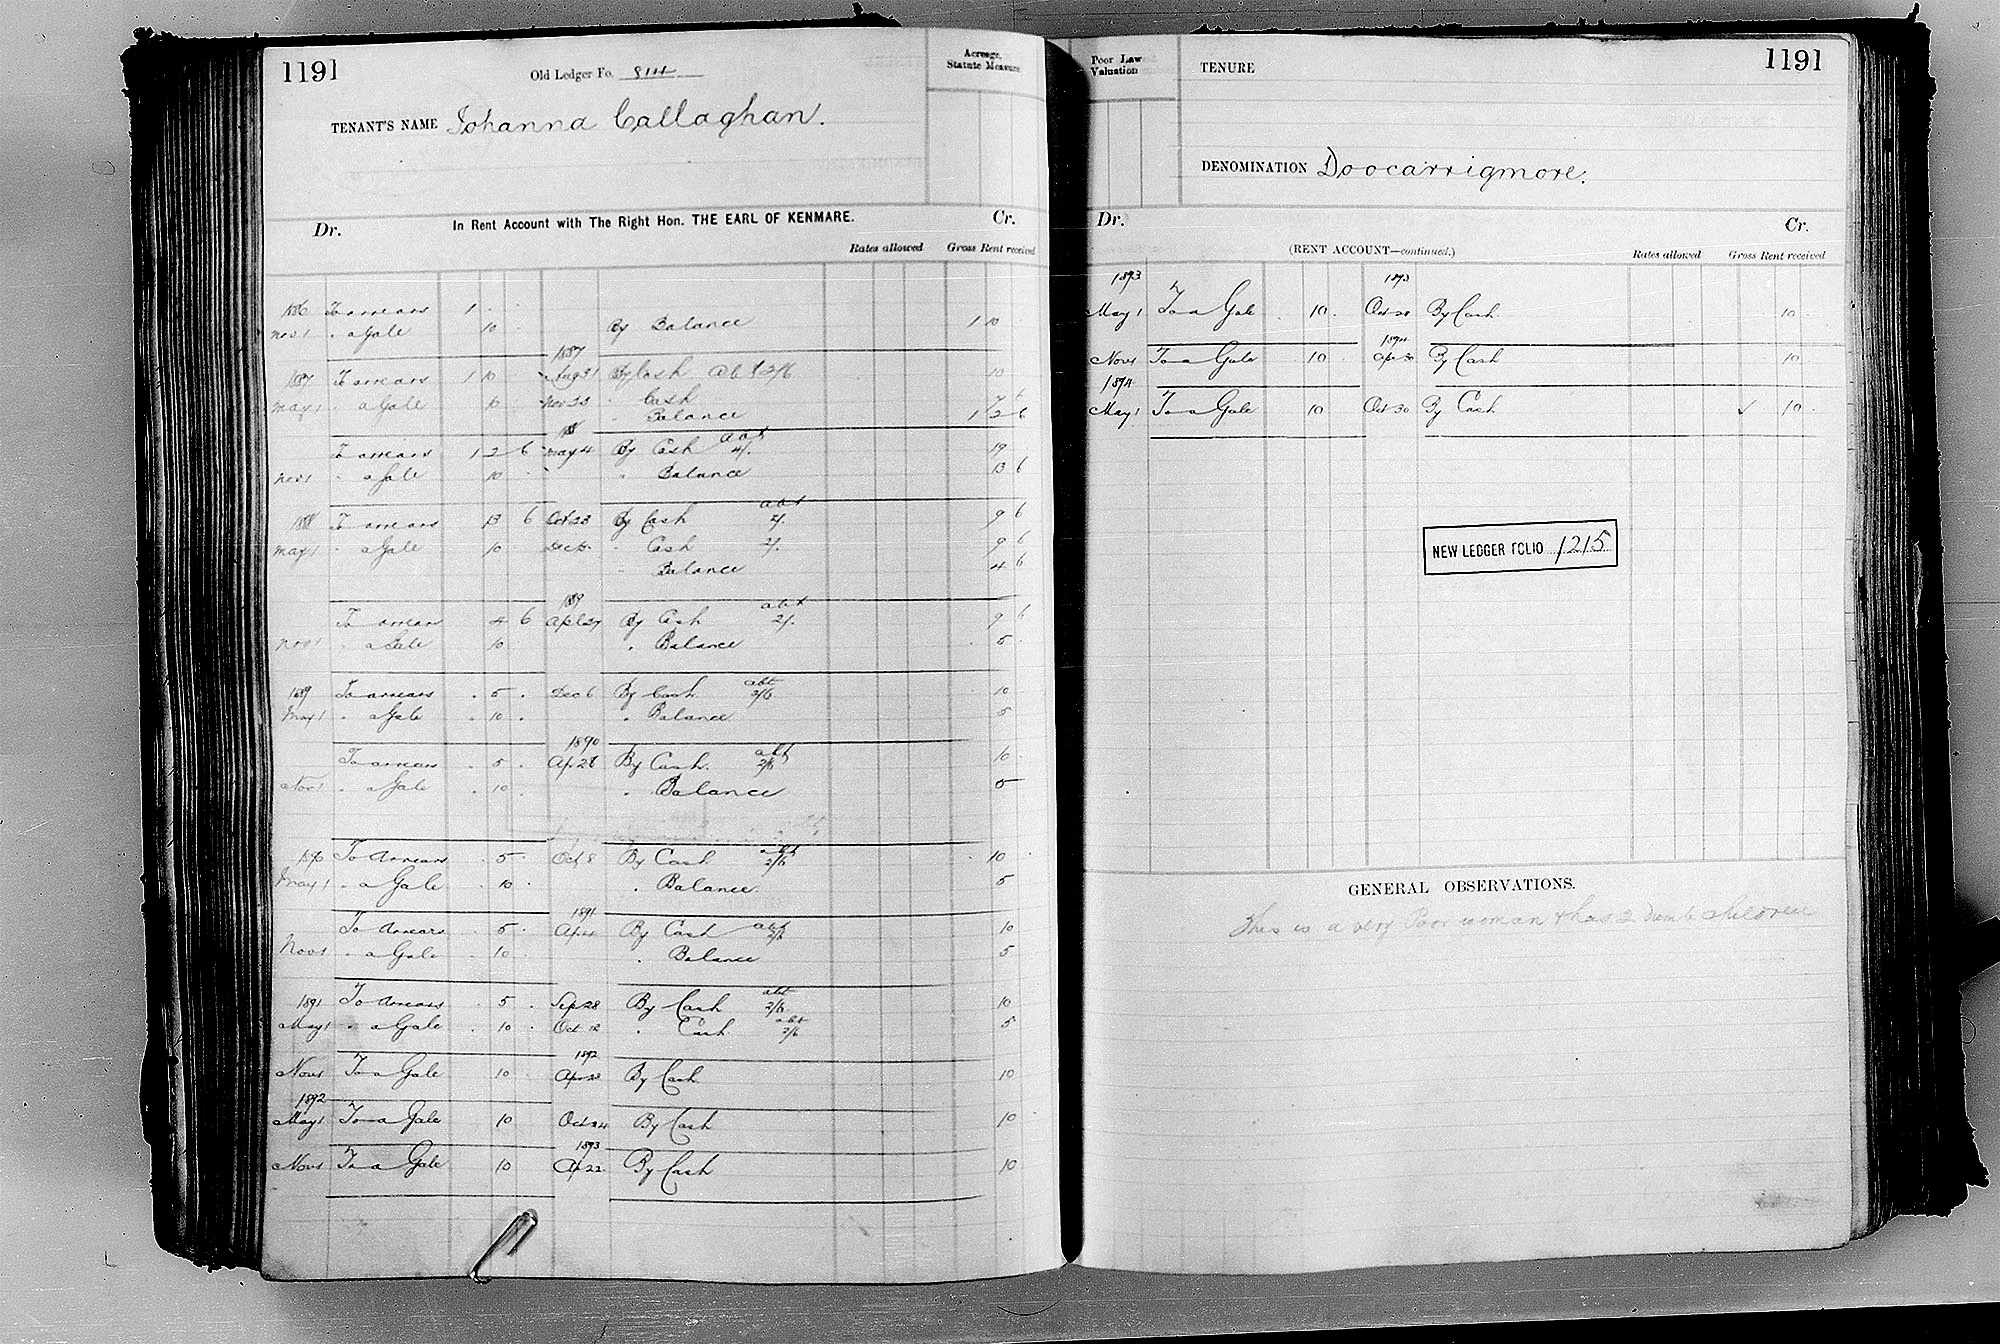 1191
Old Ledger Fo. 814
Acreage, Statute Measure
TENANT'S NAME Johanna Callaghan.
Dr. In Rent Account with The Right Hon. THE EARL OF KENMARE. Cr.
Rates allowed Gross Rent received
1886 To arrears 1 . .
Nov 1 " a Gale 10 By Balance 1 10
1887
1887 To arrears 1 10 Aug 31 By Cash abt 2/6 10
May 1 " a Gale 10 Nov 23 " Cash 7 6
" Balance 1 2 6
188
To arrears 1 2 6 May 4 By Cash abt 4/. 19
Nov 1 " a Gale 10 " Balance 13 6
1888 To arrears 13 6 Oct 23 By Cash abt 2/. 9 6
May 1 " a Gale 10 Dec " Cash 2/. 9 6
" Balance 4 6
1889
To arrears 4 6 Apl 27 By Cash abt 2/. 9 6
Nov 1 " a Gale 10 " Balance 5
1889 To arrears . 5 . Dec 6 By Cash abt 2/6 10
May 1 " a Gale . 10 . " Balance 5
1890
To arrears . 5 . Ap 28 By Cash. abt 2/6 10
Nov 1 " a Gale . 10 . " Balance 5
1890 To Arrears . 5 . Oct 8 By Cash abt 2/6 10
May 1 " a Gale . 10 . " Balance. 5
1891
To Arrears . 5 . Ap 4 By Cash abt 2/6 10
Nov 1 " a Gale . 10 . " Balance 5
1891 To Arrears . 5 . Sep 28 By Cash abt 2/6 10
May 1 " a Gale . 10 . Oct 12 " Cash abt 2/6 5
1892
Nov 1 To a Gale 10 Apr 23 By Cash 10
1892
May 1 To a Gale 10 Oct 24 By Cash 10
1893
Nov 1 To a Gale 10 Ap 22 By Cash 10
Poor Law Valuation
TENURE
1191
DENOMINATION Doocarrigmore.
Dr. Cr.
(RENT ACCOUNT—continued.) Rates allowed Gross Rent received
1893 1893
May 1 To a Gale . 10 . Oct 28 By Cash 10
1894
Nov 1 To a Gale 10 Apr 30 By Cash 10
1894
May 1 To a Gale 10 Oct 30 By Cash ✓ 10
NEW LEDGER FOLIO 1215
GENERAL OBSERVATIONS.
This is a very Poor woman & has 2 Dumb children